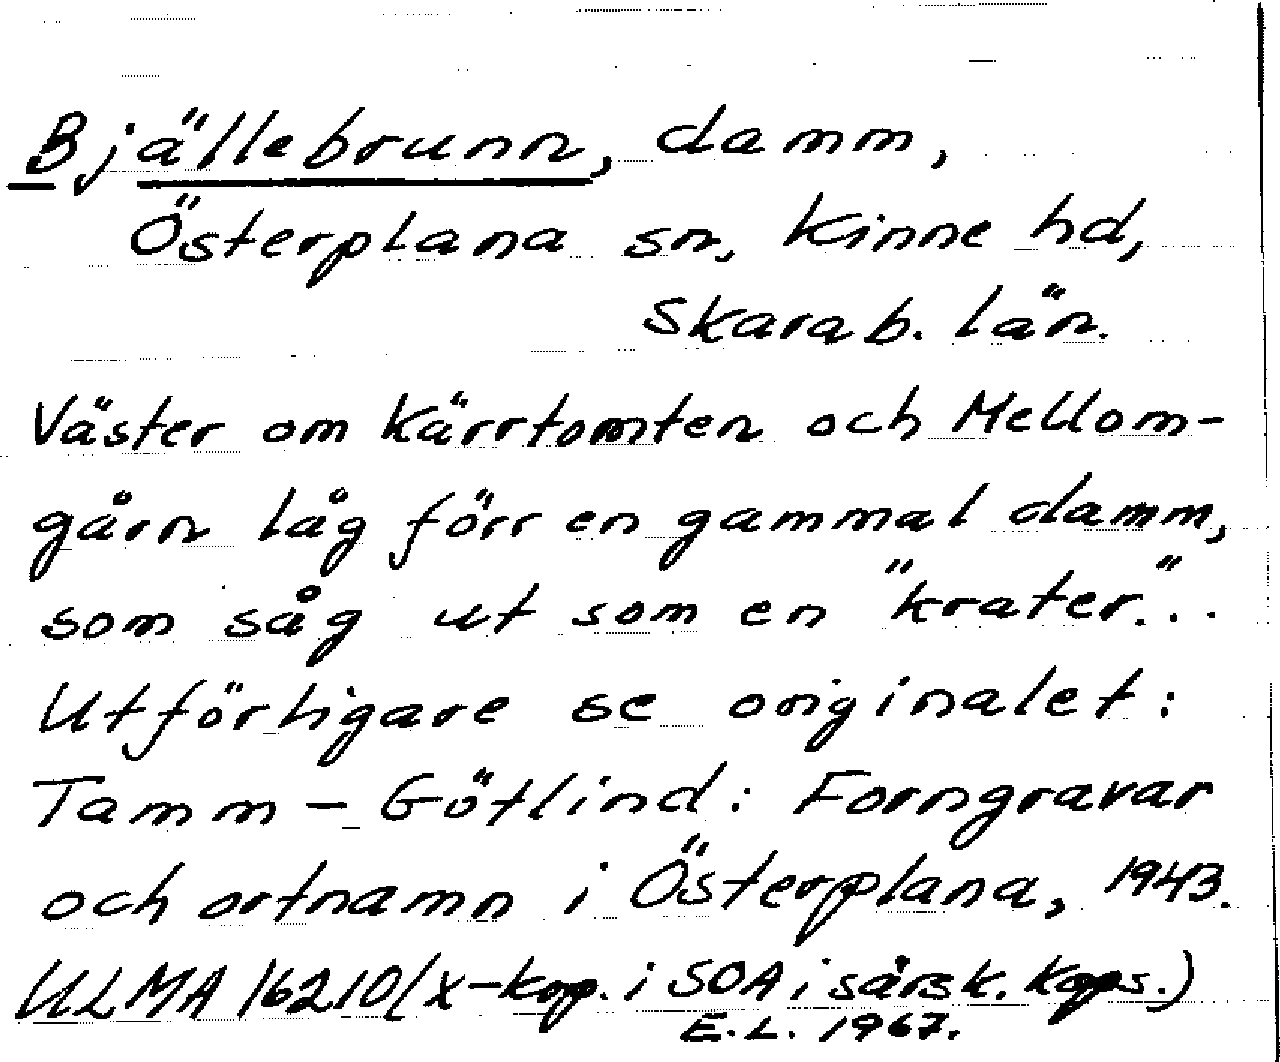 Bjällebrunn, damm,
Österplana sn, Kinne hd,
Skarab. län.
Väster om Kärrtomten och Mellom-
gårn låg förr en gammal damm,
som såg ut som en "krater"...
Utförligare se originalet:
Tamm - Götlind: Forngravar
och ortnamn i Österplana, 1943.
ULMA 16210 (X-kop. i SOA i särsk. kaps.)
E.L. 1967.